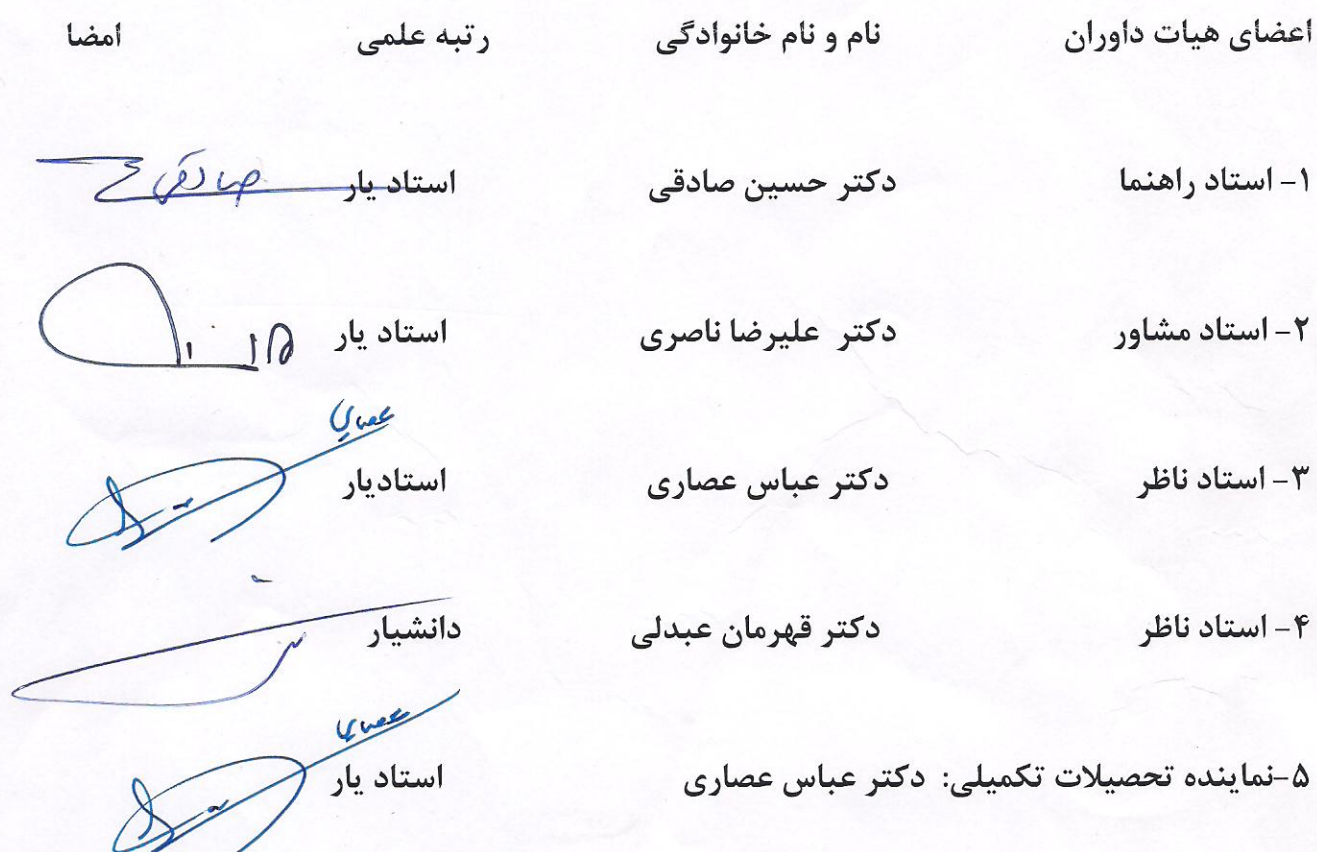 اعضای هیات داوران نام و نام خانوادگی رتبه علمی امضا
۱- استاد راهنما دکتر حسین صادقی استاد یار صادقی
۲- استاد مشاور دکتر علیرضا ناصری استاد یار
عصاری
۳- استاد ناظر دکتر عباس عصاری استادیار
۴- استاد ناظر دکتر قهرمان عبدلی دانشیار
عصاری
۵-نماینده تحصیلات تکمیلی: دکتر عباس عصاری استاد یار